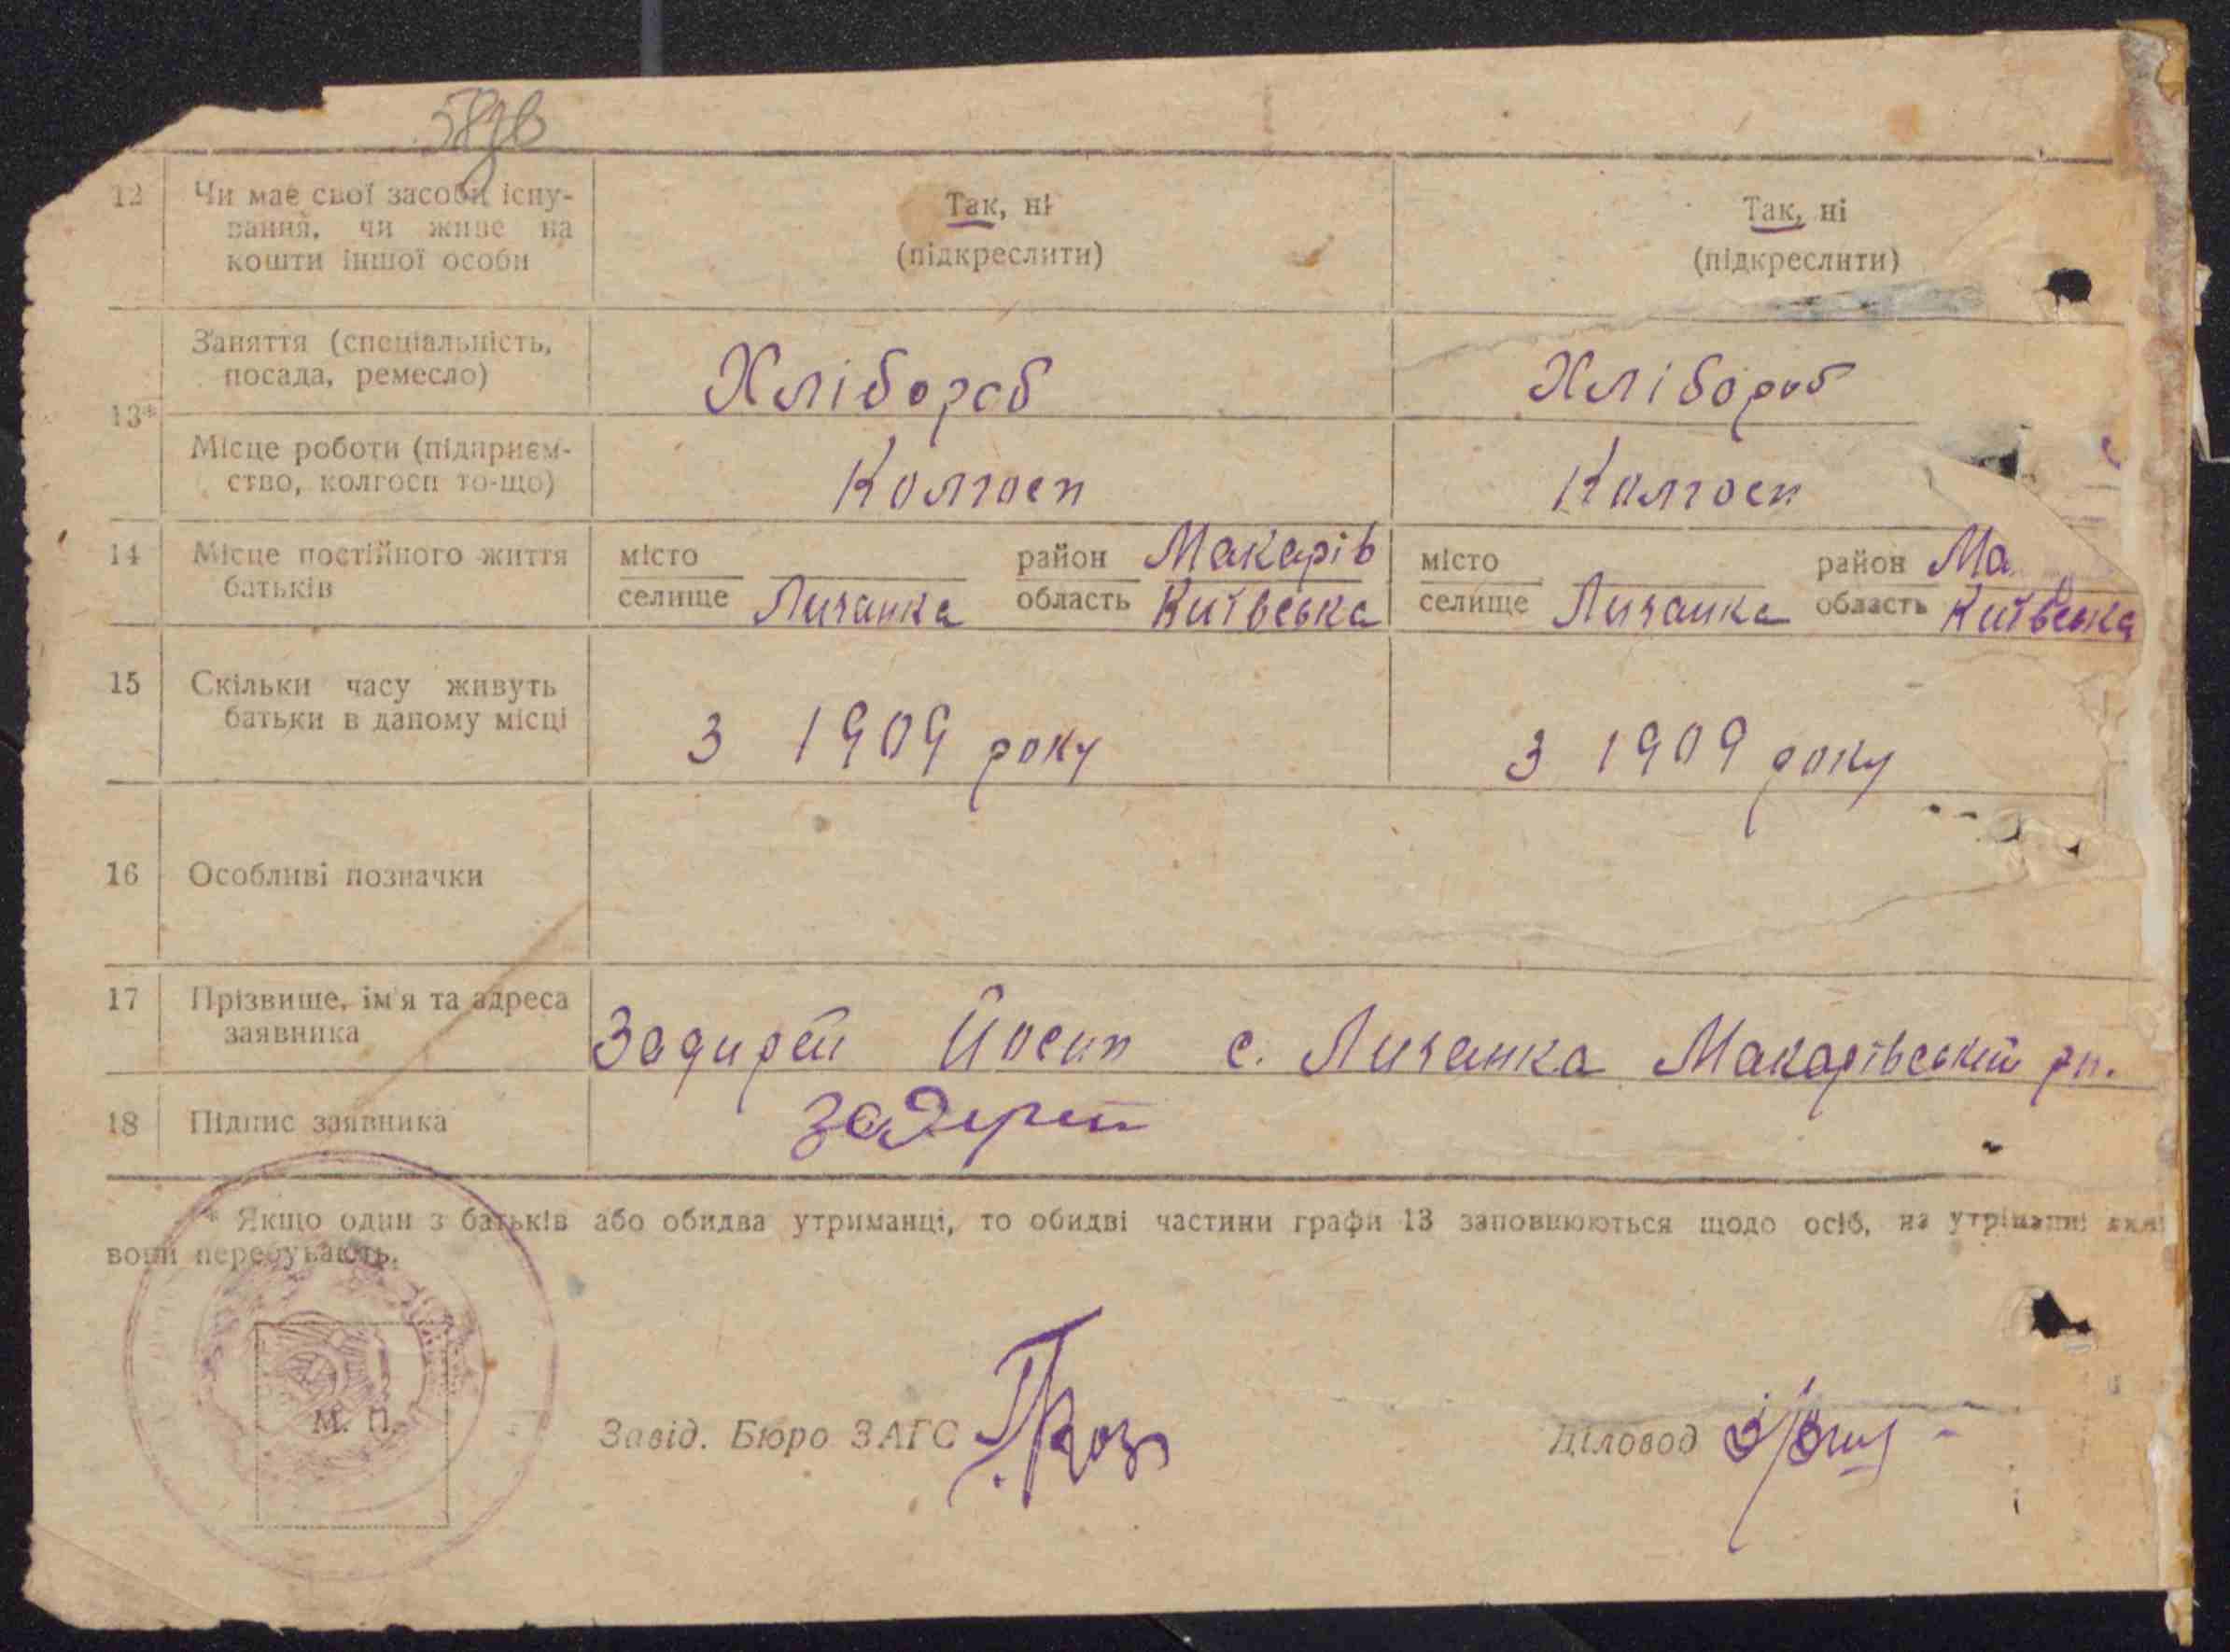 58зв
12 Чи має свої засоби існу-
вання, чи живе на
кошти іншої особи
Так, ні
(підкреслити)
Так, ні
(підкреслити)
13*
Заняття (спеціальність,
посада, ремесло)
Хлібороб
Хлібороб
Місце роботи (підприєм-
ство, колгосп то-що)
Колгосп
Колгосп
14 Місце постійного життя
батьків
місто район Макарів
селище Личанка область Київська
місто район Ма
селище Личанка область Київська
15 Скільки часу живуть
батьки в даному місці
З 1909 року
З 1909 року
16 Особливі позначки
17 Прізвище, ім'я та адреса
заявника
Задирей Йосип с. Личанка Макарівський рн.
18 Підпис заявника
Задерей
* Якщо один з батьків або обидва утриманці, то обидві частини графи 13 заповнюються щодо осіб, на утріманні яких
вони перебувають.
М. П.
Завід. Бюро ЗАГС
Діловод